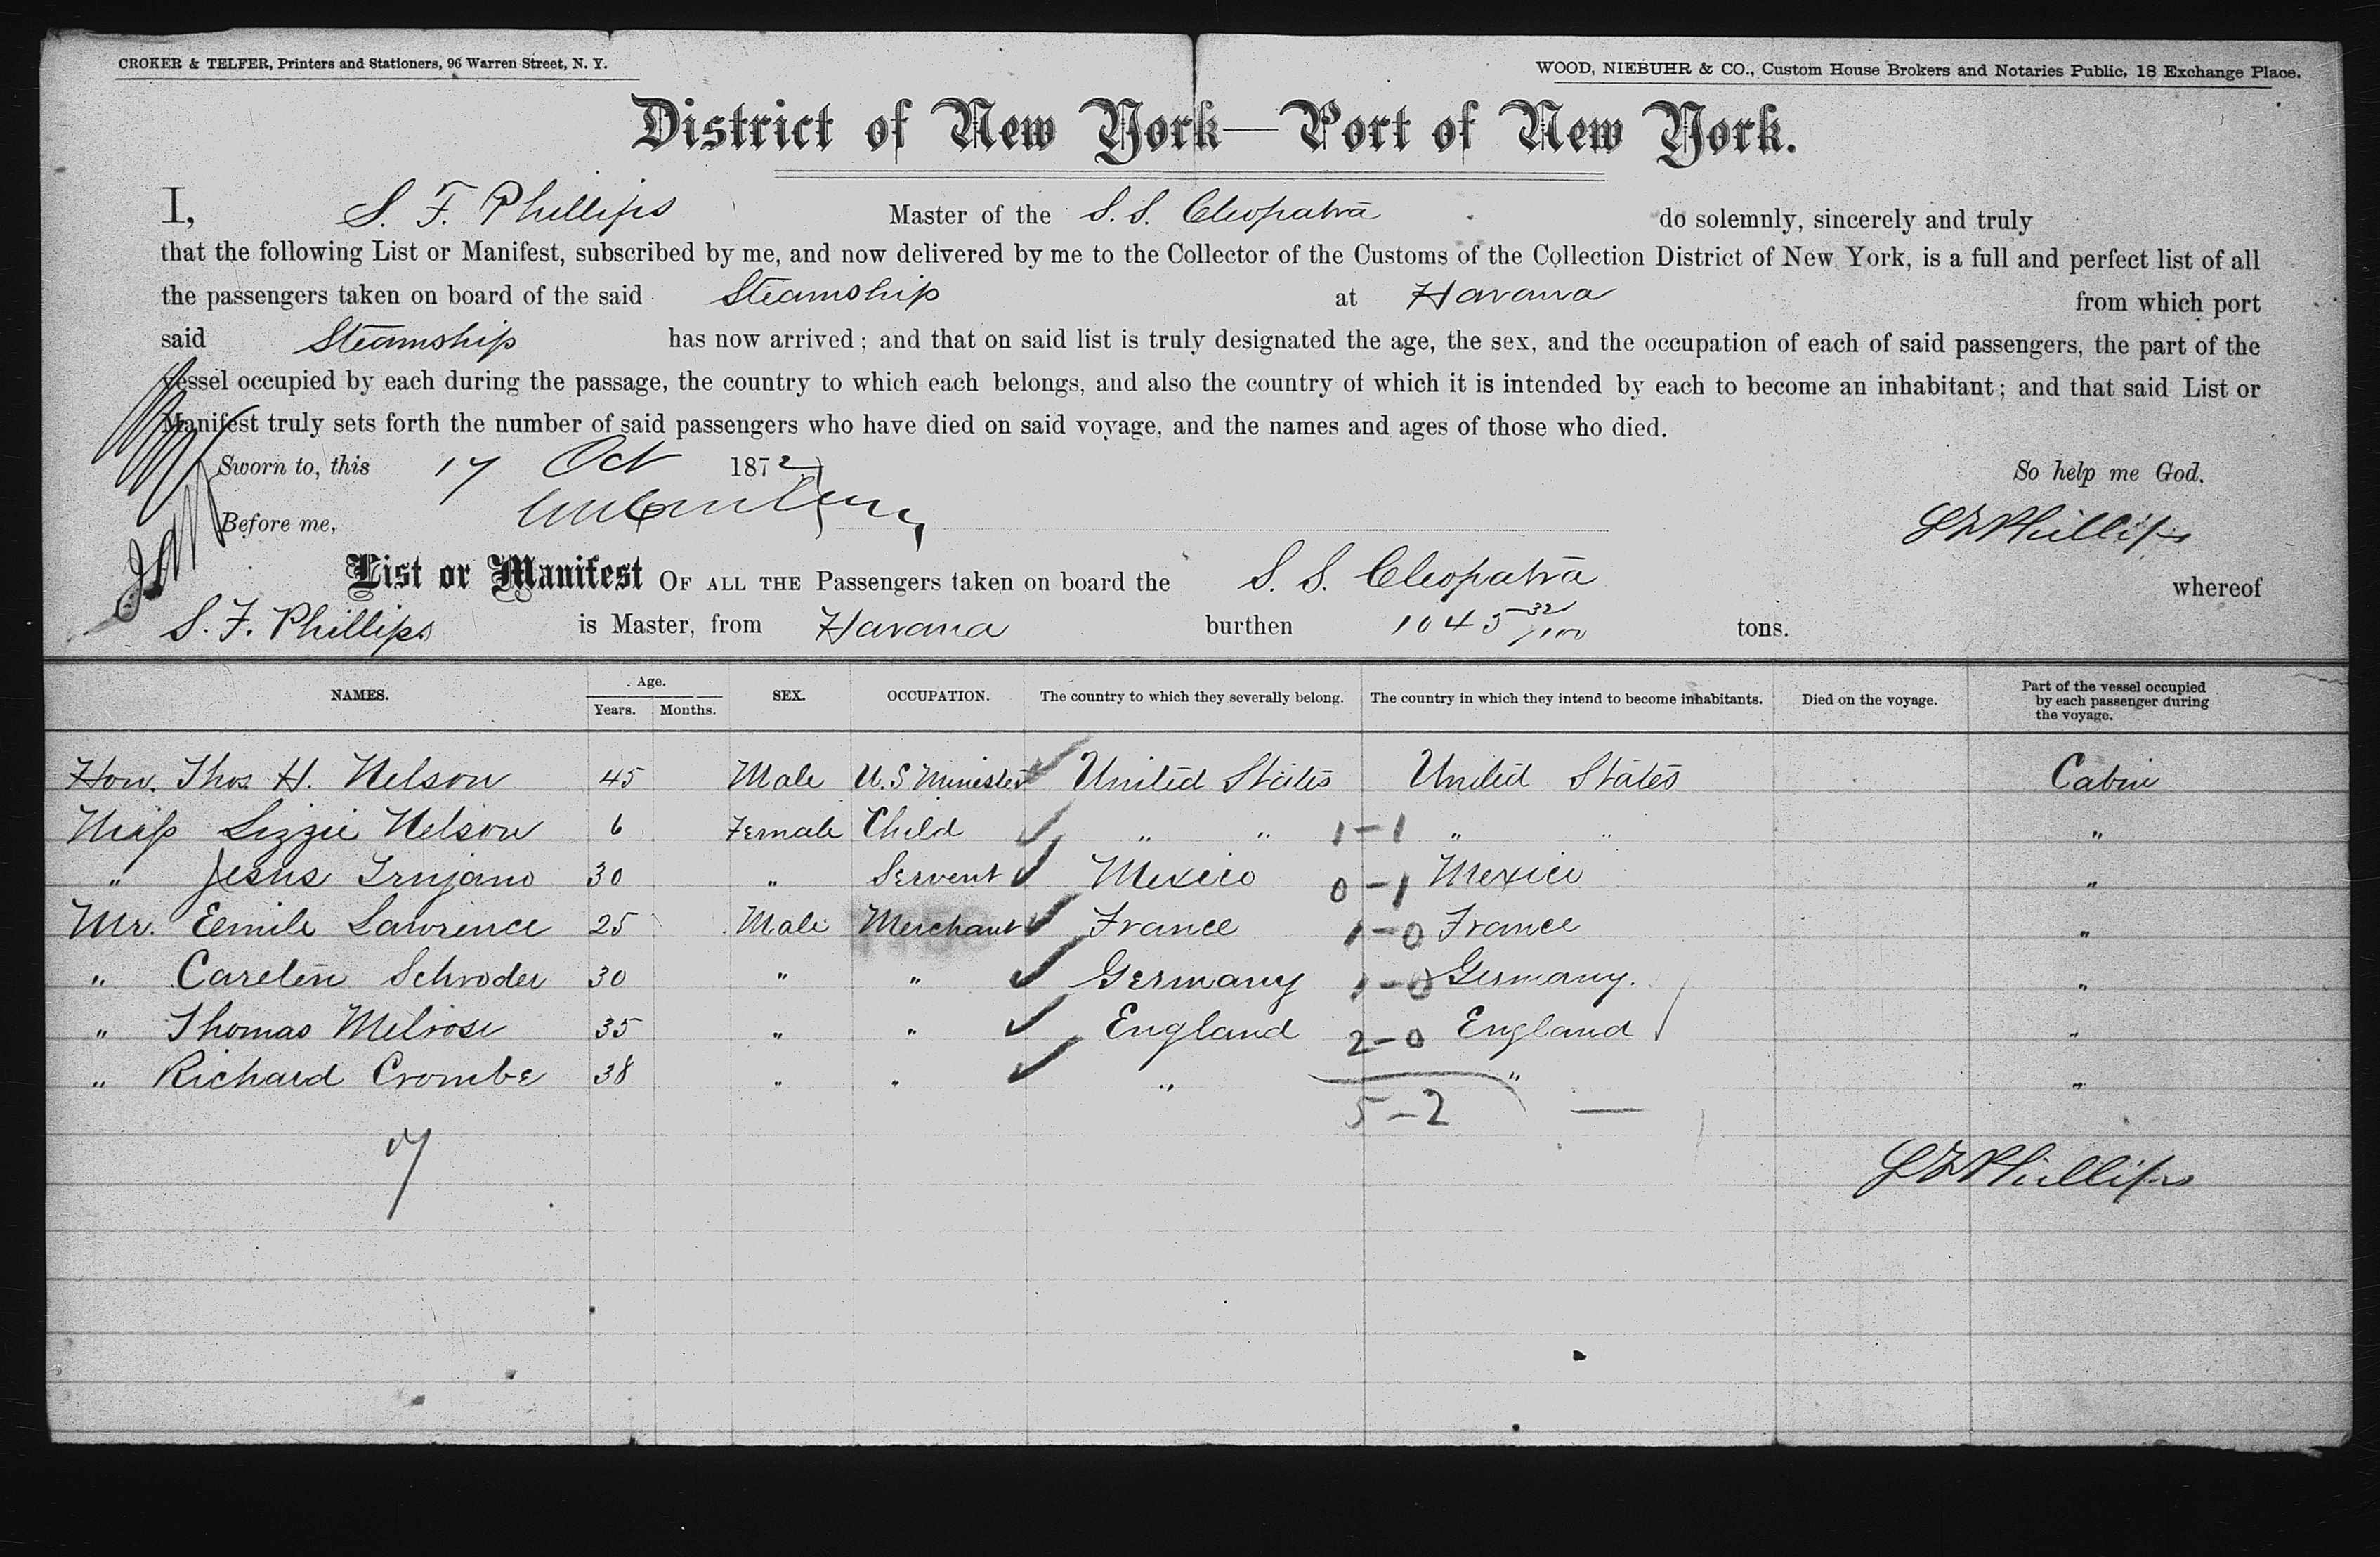 CROKER & TELFER, Printers and Stationers, 96 Warren Street, N. Y.
WOOD, NIEBUHR & CO., Custom House Brokers and Notaries Public, 18 Exchange Place.
District of New York—Port of New York.
I, S. F. Phillips Master of the S. S. Cleopatra do solemnly, sincerely and truly
that the following List or Manifest, subscribed by me, and now delivered by me to the Collector of the Customs of the Collection District of New York, is a full and perfect list of all
the passengers taken on board of the said Steamship at Havana from which port
said Steamship has now arrived; and that on said list is truly designated the age, the sex, and the occupation of each of said passengers, the part of the
vessel occupied by each during the passage, the country to which each belongs, and also the country of which it is intended by each to become an inhabitant; and that said List or
Manifest truly sets forth the number of said passengers who have died on said voyage, and the names and ages of those who died.
Sworn to, this 17 Oct 1872 So help me God.
Before me, S F Phillips
List or Manifest OF ALL THE Passengers taken on board the S. S. Cleopatra whereof
S. F. Phillips is Master, from Havana burthen 1045 32/100 tons.
NAMES. Age. Years. Months. SEX. OCCUPATION. The country to which they severally belong. The country in which they intend to become inhabitants. Died on the voyage. Part of the vessel occupied by each passenger during the voyage.
Hon. Thos. H. Nelson 45 Male U.S Minister United States United States Cabin
Miss Lizzie Nelson 6 Female Child " " 1-1 " " "
" Jesus Trujano 30 " Servent Mexico 0-1 Mexico "
Mr. Eemile Lawrence 25 Male Merchant France 1-0 France "
" Carsten Schroder 30 " " Germany 1-0 Germany. "
" Thomas Melrose 35 " " England 2-0 England "
" Richard Crombe 38 " " " " "
5-2 —
7
S F Phillips